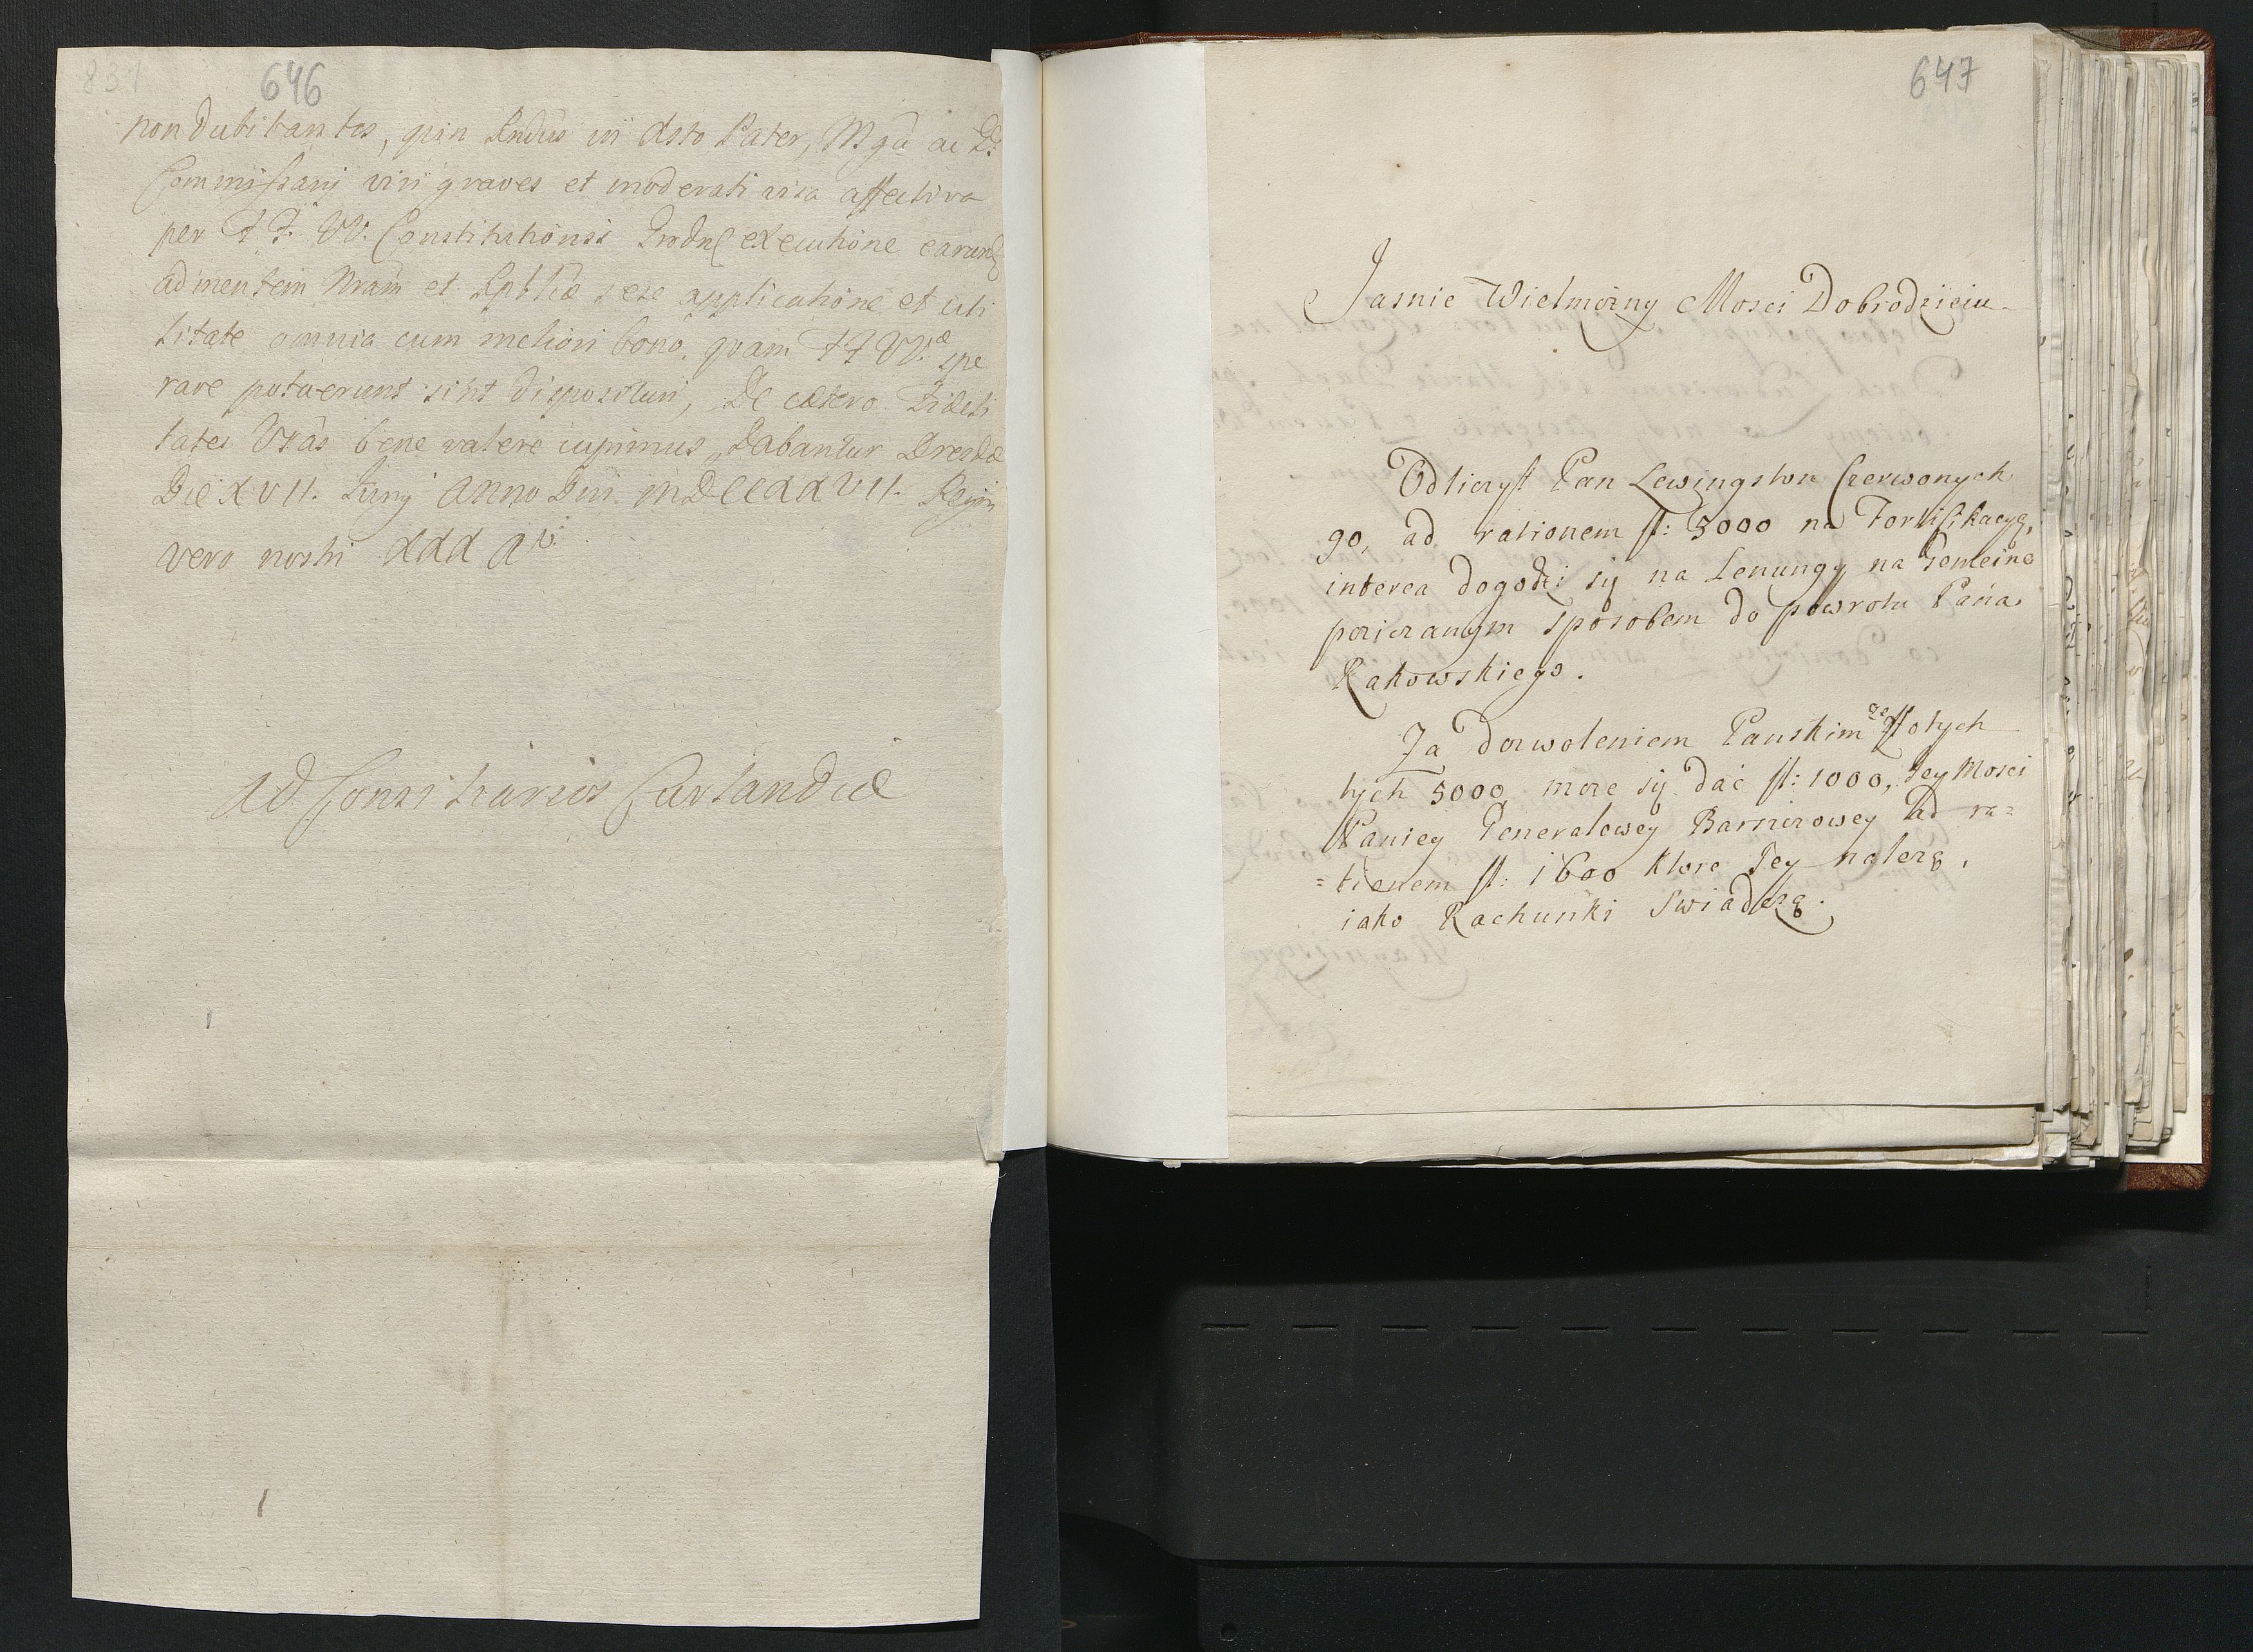 831
646
non dubitantes, quin Rndus in Xsto Pater, Mgci ac D.
Commissarij viri graves et moderati visa affectiva
per F. F. VV. Constitutionis executione earund
ad mentem Nram et Rptlicæ sese applicatione et uti
litate omnia cum meliori bono, quam F F VV.æ spe
rare potaerunt sint disposituri, De cætero Fideli
tates Vras bene valere cupimus, Dabantur Dresdæ
Die XVII. Junij Anno Dni MDCCXXVII. Regni
vero nostri XXX A
Ad Consiliarios Curlandiæ
647
Jasnie Wielmożny Mosci Dobrodzieiu
Odliczył Pan Lewingston Czerwonych
90, ad rationem fl: 5000 na Fortifikacyą,
interea dogodzi się na Lenungy na Gemeine
pozieranym sposobem do powrotu Pana
Rakowskiego.
Za dozwoleniem Panskim ze złotych
tych 5000 może się dać fl: 1000, Jey Mosci
Paniey Generalowey Barnerowey ad ra=
=tionem fl: 1600 ktore Jey należą,
iako Rachunki Swiadczą.